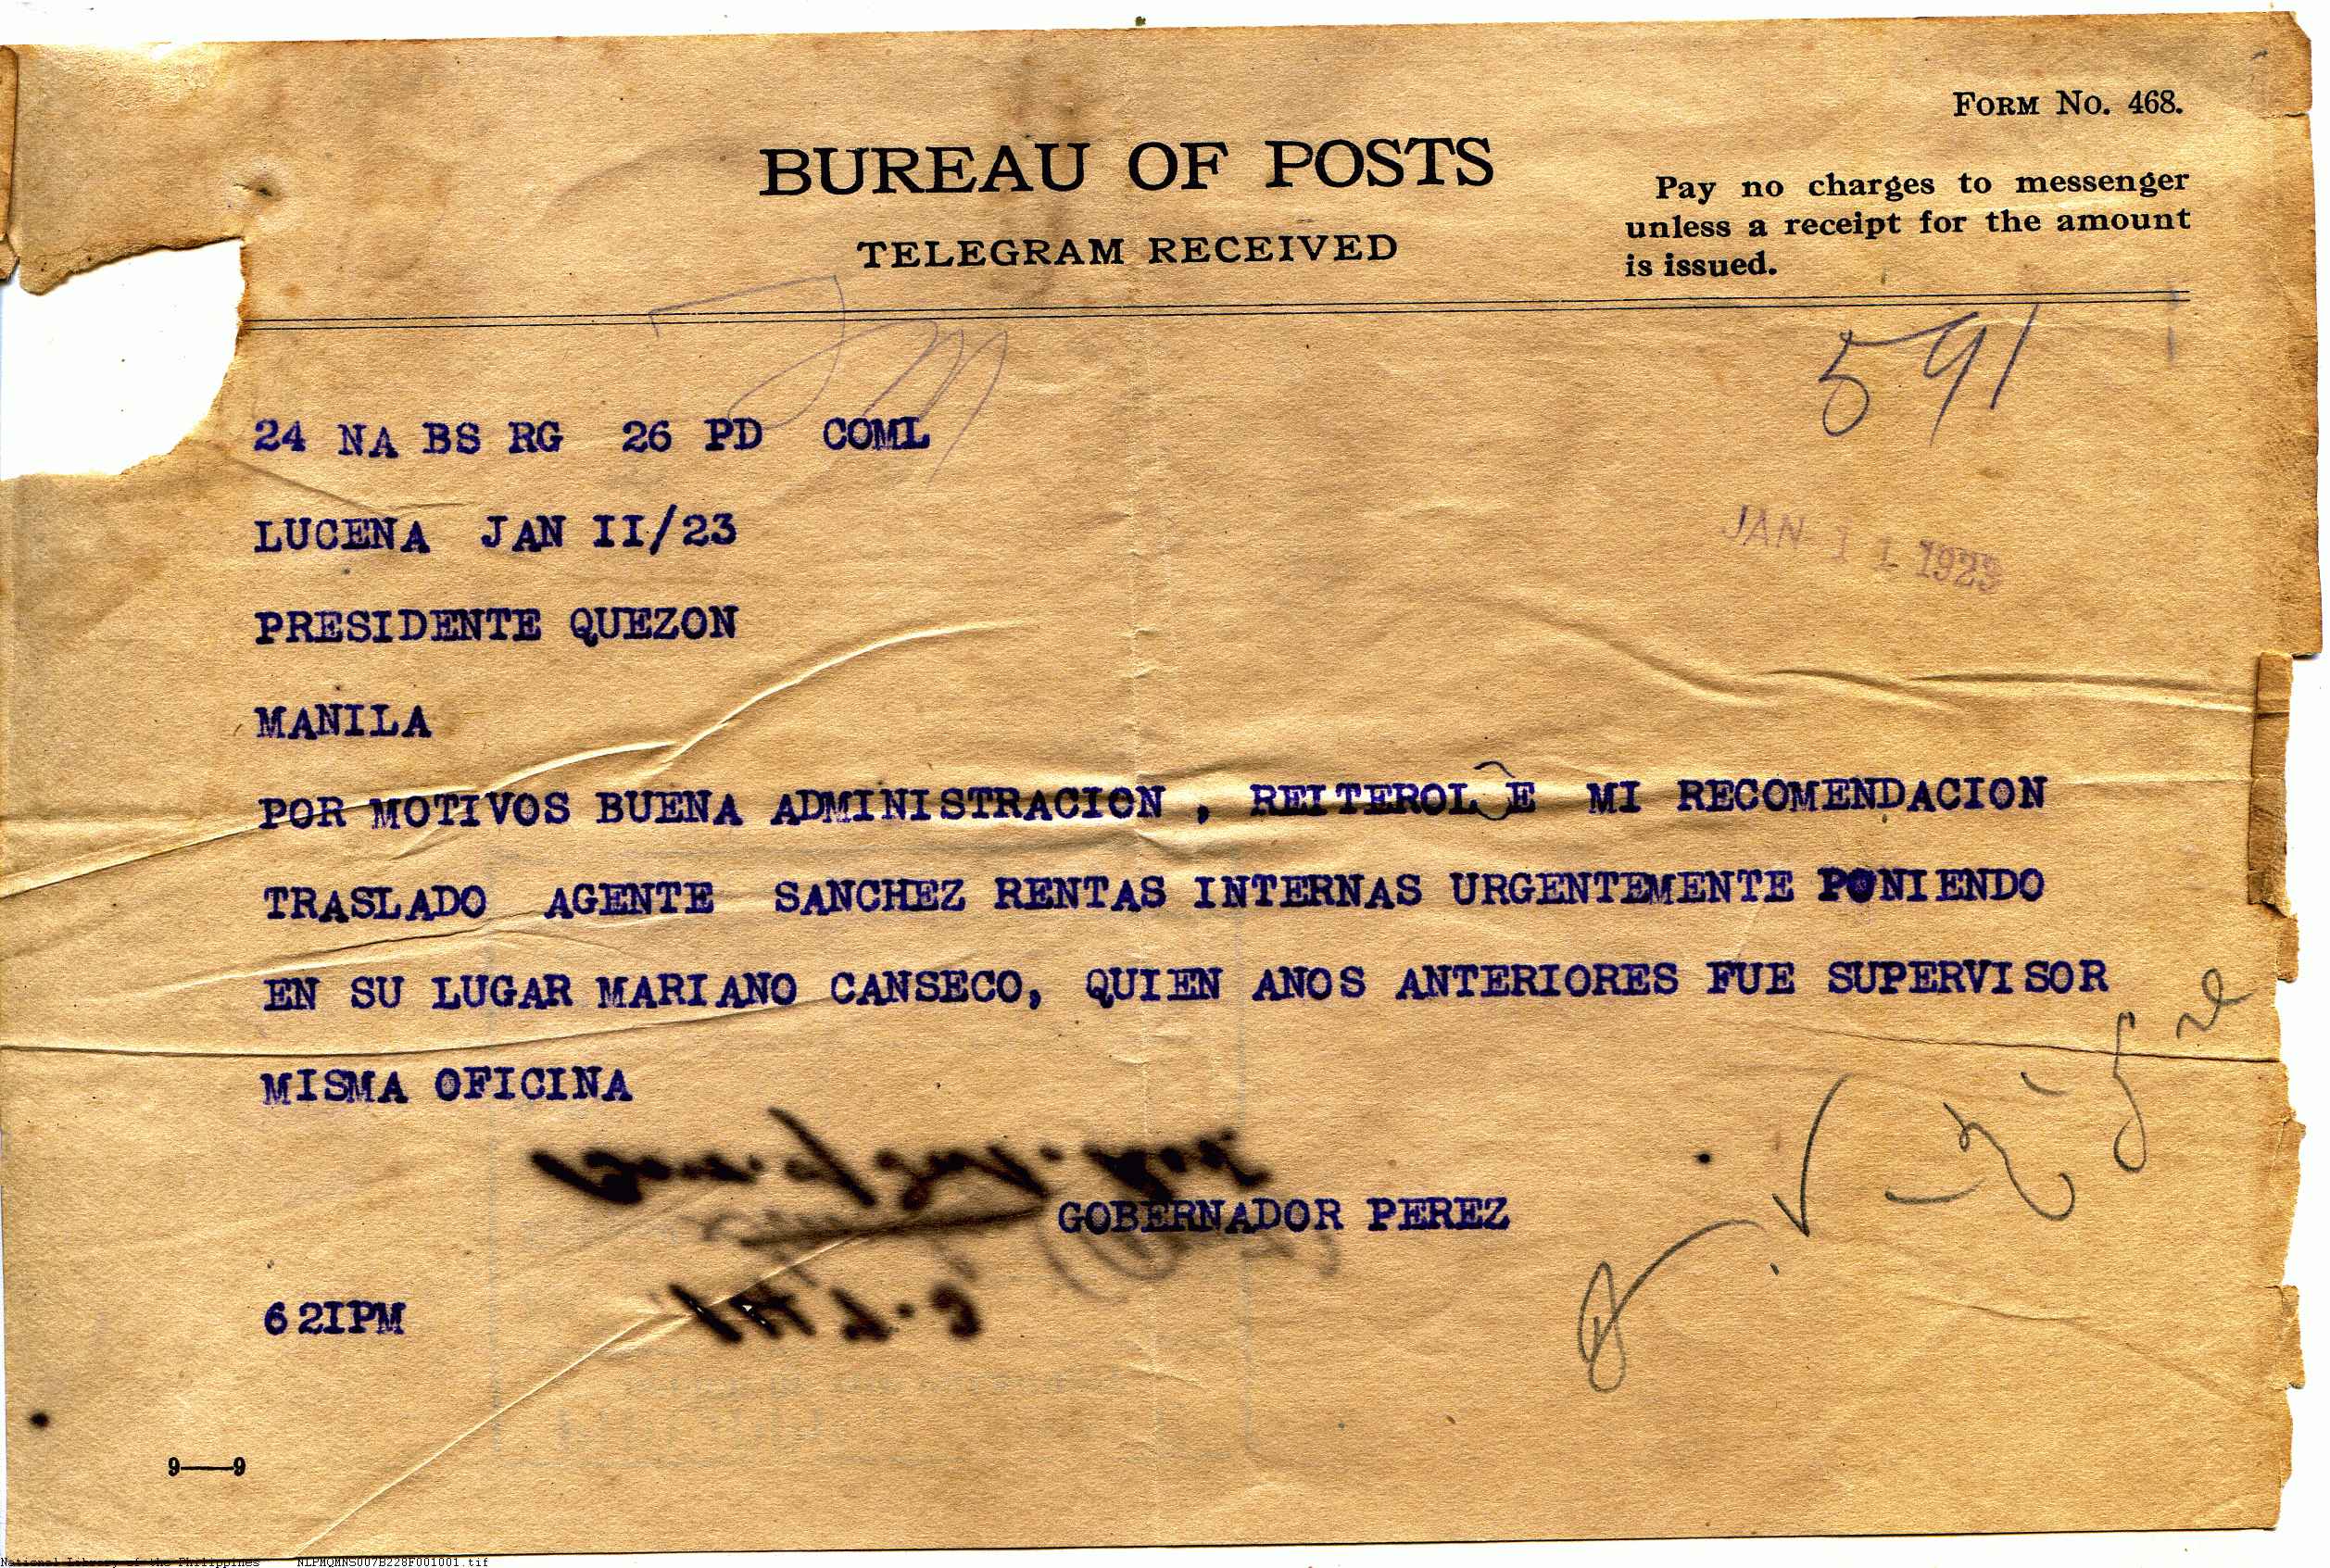 FORM No. 468.
BUREAU OF POSTS
TELEGRAM RECEIVED
Pay no charges to messenger
unless a receipt for the amount
is issued.
591
24 NA BS RG 26 PD COML
LUCENA JAN II/23
JAN 11 1923
PRESIDENTE QUEZON
MANILA
POR MOTIVOS BUENA ADMINISTRACION , REITEROL E MI RECOMENDACION
TRASLADO AGENTE SANCHEZ RENTAS INTERNAS URGENTEMENTE PONIENDO
EN SU LUGAR MARIANO CANSECO, QUIEN ANOS ANTERIORES FUE SUPERVISOR
MISMA OFICINA
GOBERNADOR PEREZ
6 2IPM
9——9
National Library of the Philippines NLPMQMNS007B228F001001.tif